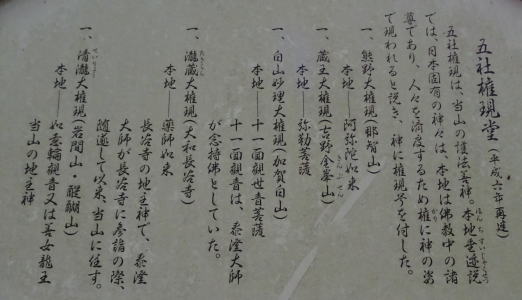 五社権現堂(平成六年再建)
五社権現は、当山の護法善神。本地垂迹説
では、日本固有の神々は、本地は佛教中の諸
尊であり、人々を済度するため権に神の姿
で現われると説き、神に権現号を付した。
一、熊野大権現(那智山)
本地――阿弥陀如来
一、蔵王大権現(吉野金峯山)
本地――弥勒菩薩
一、白山妙理大権現(加賀白山)
本地――十一面観世音菩薩
十一面観音は、泰澄大師
が念持佛としていた。
一、瀧蔵大権現(大和長谷寺)
本地――薬師如来
長谷寺の地主神で、泰澄
大師が長谷寺に参詣の際、
随逐して以来、当山に住す。
一、清瀧大権現(岩間山・醍醐山)
本地――如意輪観音又は善女龍王
当山の地主神